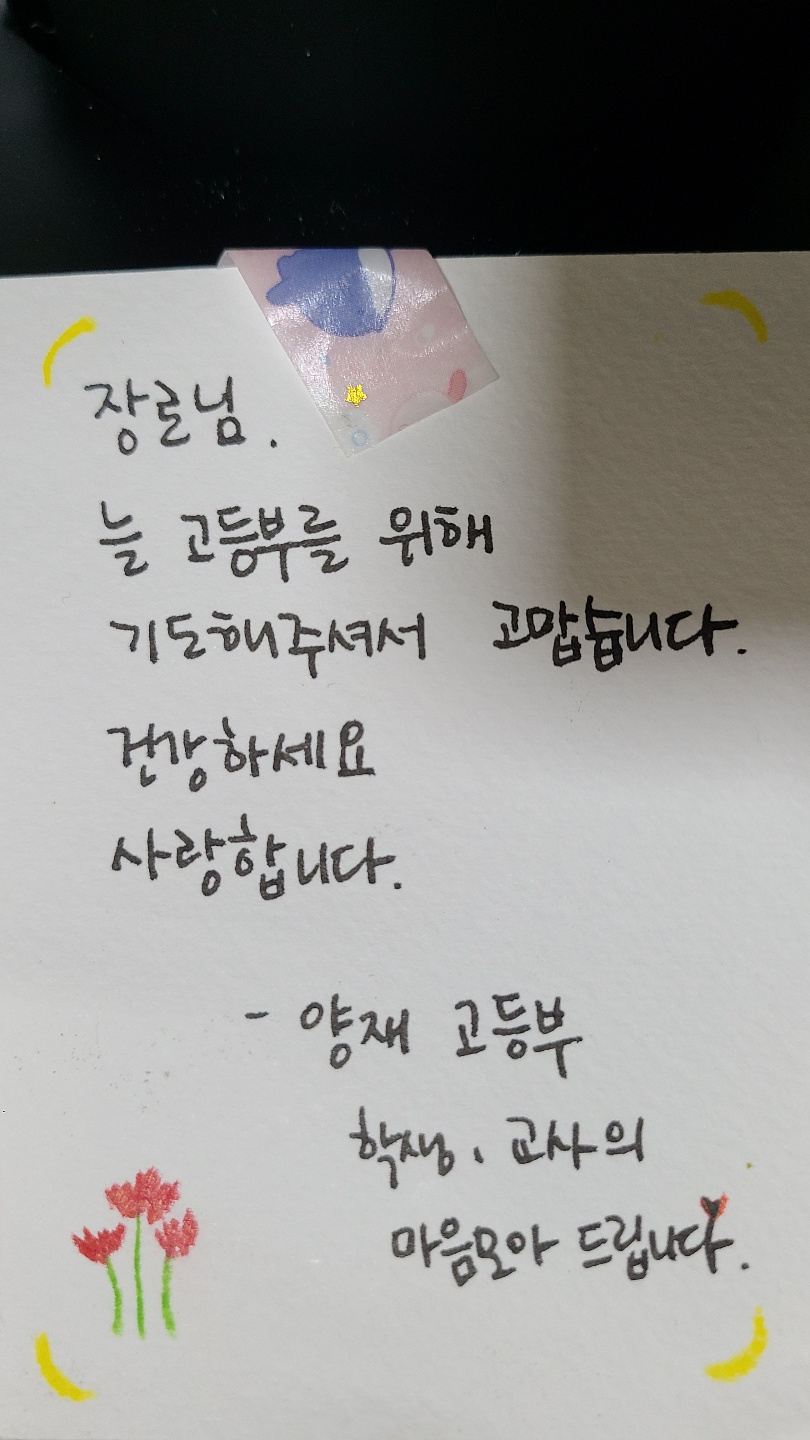 장로님.
늘 고등부를 위해
기도해주셔서 고맙습니다.
건강하세요
사랑합니다.
- 양재 고등부
학생, 교사의
마음모아 드립니다.